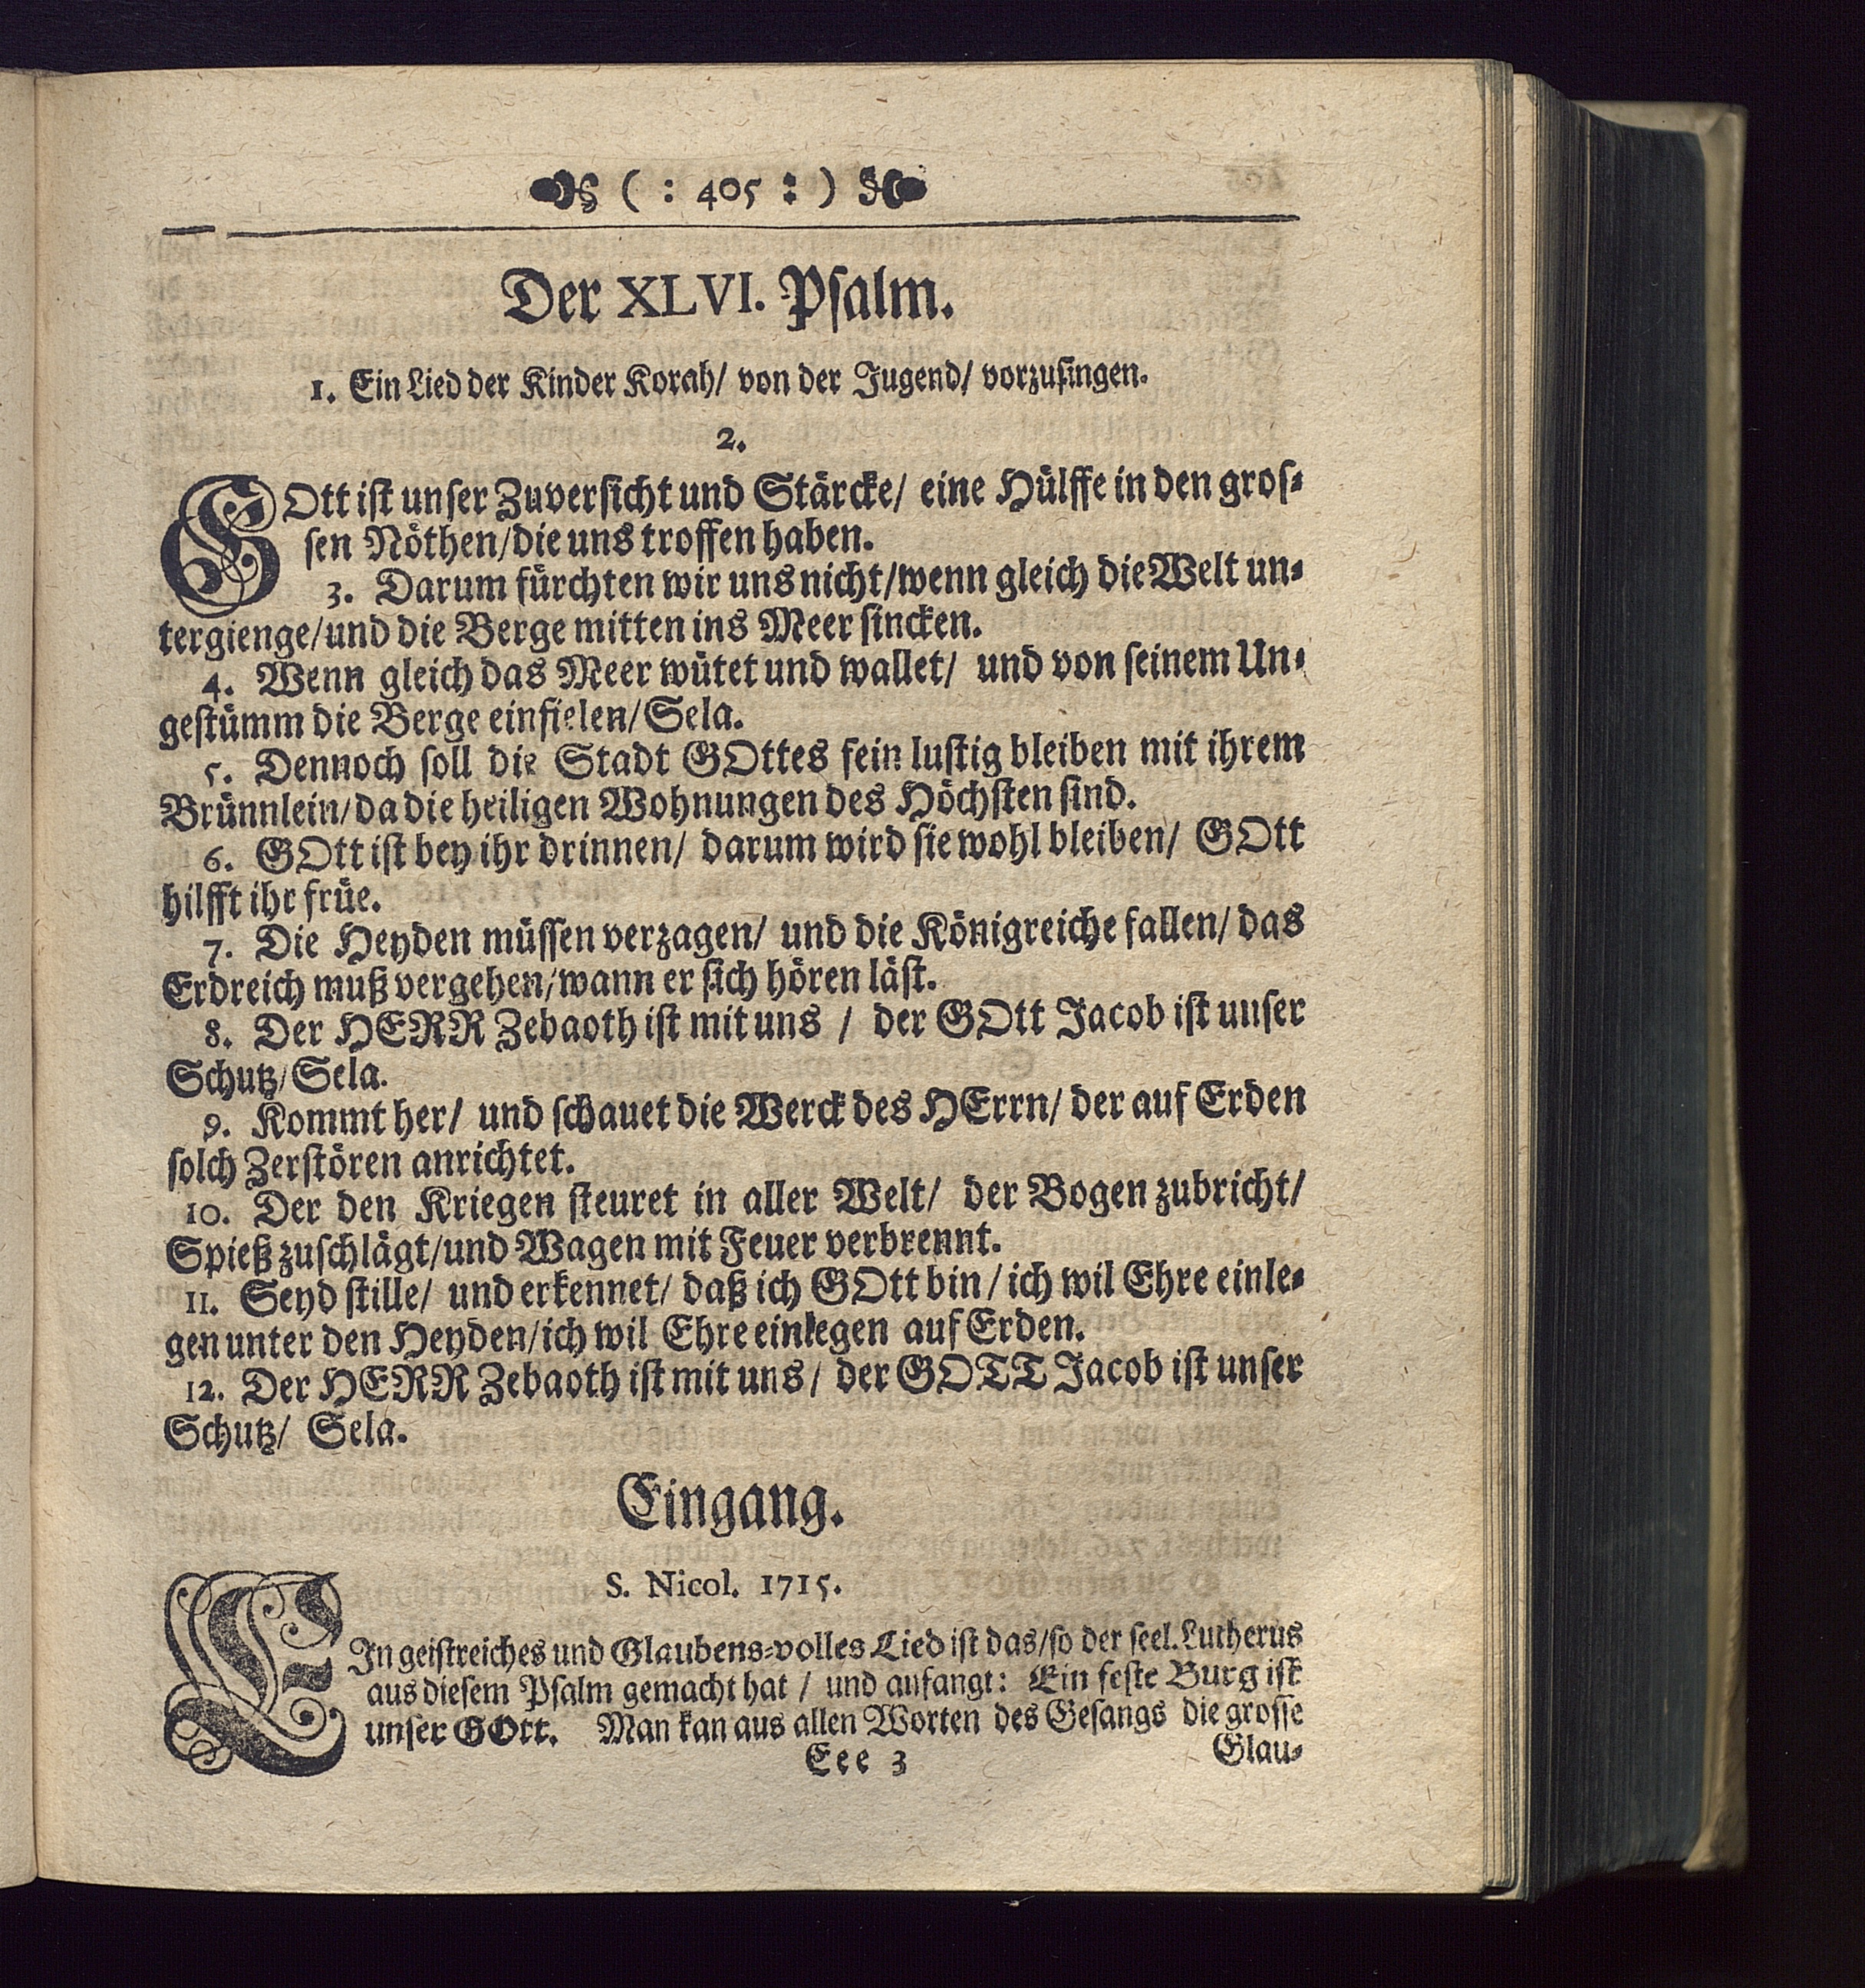 ( : 405 : )
Der XLVI. Psalm.
1. Ein Lied der Kinder Korah/ von der Jugend/ vorzusingen.
2.
GOtt ist unser Zuversicht und Stärcke/ eine Hülffe in den gros-
sen Nöthen/die uns troffen haben.
3. Darum fürchten wir uns nicht/wenn gleich die Welt un-
tergienge/und die Berge mitten ins Meer sincken.
4. Wenn gleich das Meer wütet und wallet/ und von seinem Un-
gestümm die Berge einfielen/Sela.
5. Dennoch soll die Stadt GOttes fein lustig bleiben mit ihrem
Brünnlein/da die heiligen Wohnungen des Höchsten sind.
6. GOtt ist bey ihr drinnen/ darum wird sie wohl bleiben/ GOtt
hilfft ihr früe.
7. Die Heyden müssen verzagen/ und die Königreiche fallen/ das
Erdreich muß vergehen/wann er sich hören läst.
8. Der HERR Zebaoth ist mit uns / der GOtt Jacob ist unser
Schutz/Sela.
9. Kommt her/ und schauet die Werck des HErrn/ der auf Erden
solch Zerstören anrichtet.
10. Der den Kriegen steuret in aller Welt/ der Bogen zubricht/
Spieß zuschlägt/und Wagen mit Feuer verbrennt.
11. Seyd stille/ und erkennet/ daß ich GOtt bin/ ich wil Ehre einle-
gen unter den Heyden/ich wil Ehre einlegen auf Erden.
12. Der HERR Zebaoth ist mit uns/ der GOTT Jacob ist unser
Schutz/ Sela.
Eingang.
S. Nicol. 1715.
EIn geistreiches und Glaubens-volles Lied ist das/so der seel. Lutherus
aus diesem Psalm gemacht hat / und anfangt: Ein feste Burg ist
unser GOtt. Man kan aus allen Worten des Gesangs die grosse
Eee 3 Glau-